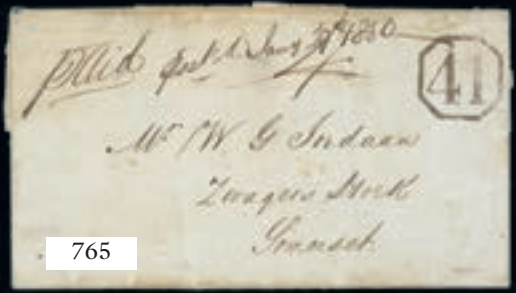 paid Jany 1850
41
Mr W G Jordaan
Zwagers Hoek
Somerset
765